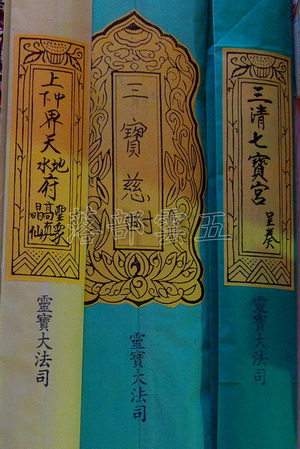 三清七寶宮
呈奏
靈寶大法司
三寶慈
靈寶大法司
上中下界天
地水
府
靈寶大法司
五 部落